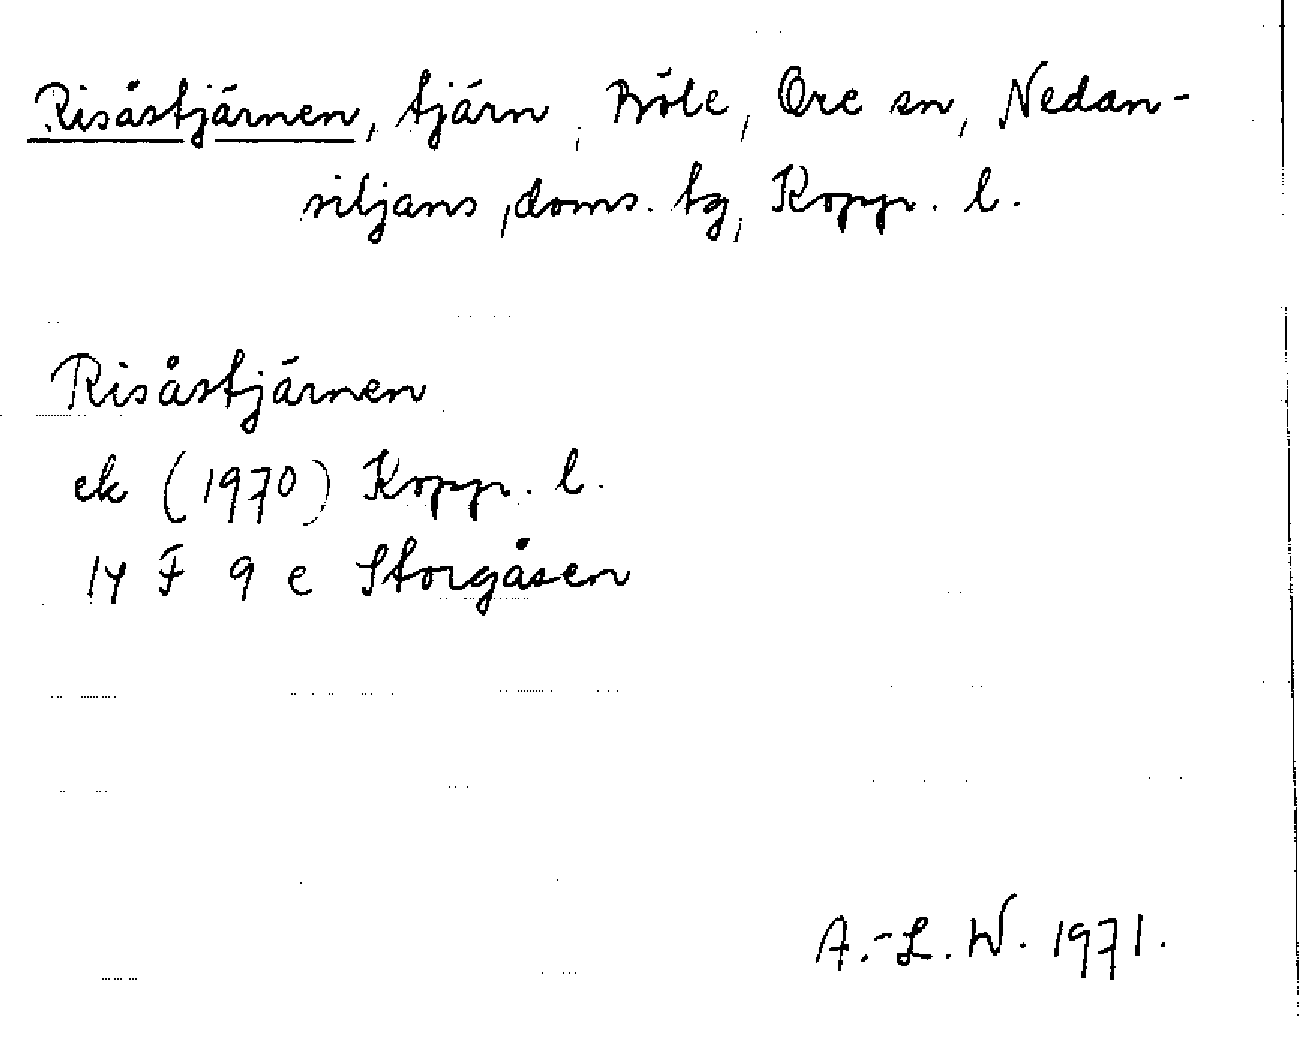 Risåstjärnen, tjärn, Bröle, Ore sn, Nedan-
siljans, doms. tg, Kopp. l.
Risåstjärnen
ek (1970) Kopp. l.
14 F 9 e Storgåsen
A.-L. W. 1971.